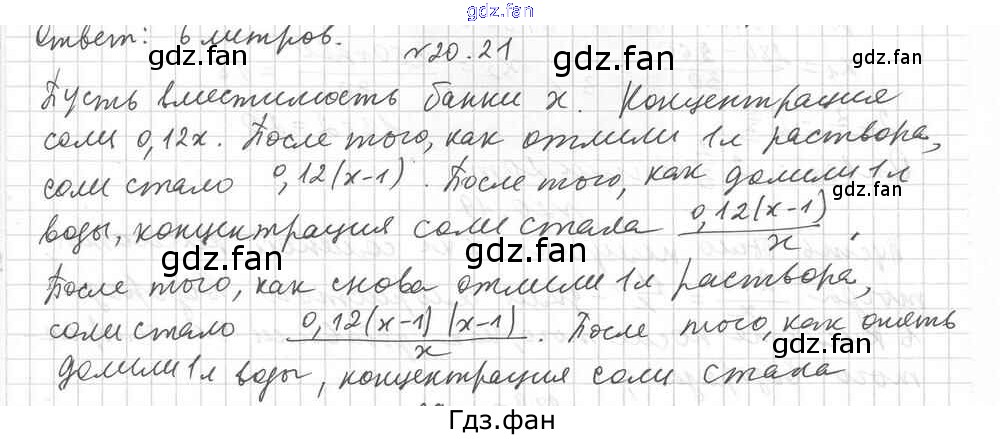 gdz.fan
Ответ: 6 литров.
gdz.fan gdz.fan
№20.21
Пусть вместимость банки x. Концентрация
соли 0,12x. После того, как отлили 1л раствора,
gdz.fan gdz.fan
соли стало 0,12(x-1). После того, как долили 1л
gdz.fan
воды, концентрация соли стала 0,12(x-1)/x.
gdz.fan gdz.fan
После того, как снова отлили 1л раствора,
соли стало 0,12(x-1)(x-1)/x. После того, как опять
gdz.fan gdz.fan
долили 1л воды, концентрация соли стала
gdz.fan gdz.fan
Гдз.фан